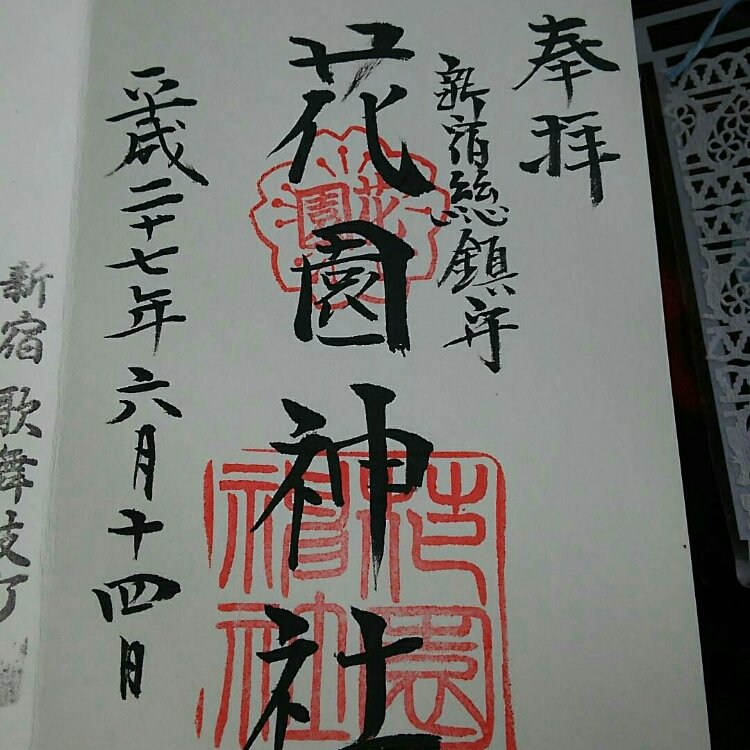 奉拝
新宿総鎮守
花園神社
花園
花園神社
平成二十七年六月十四日
新宿歌舞伎町